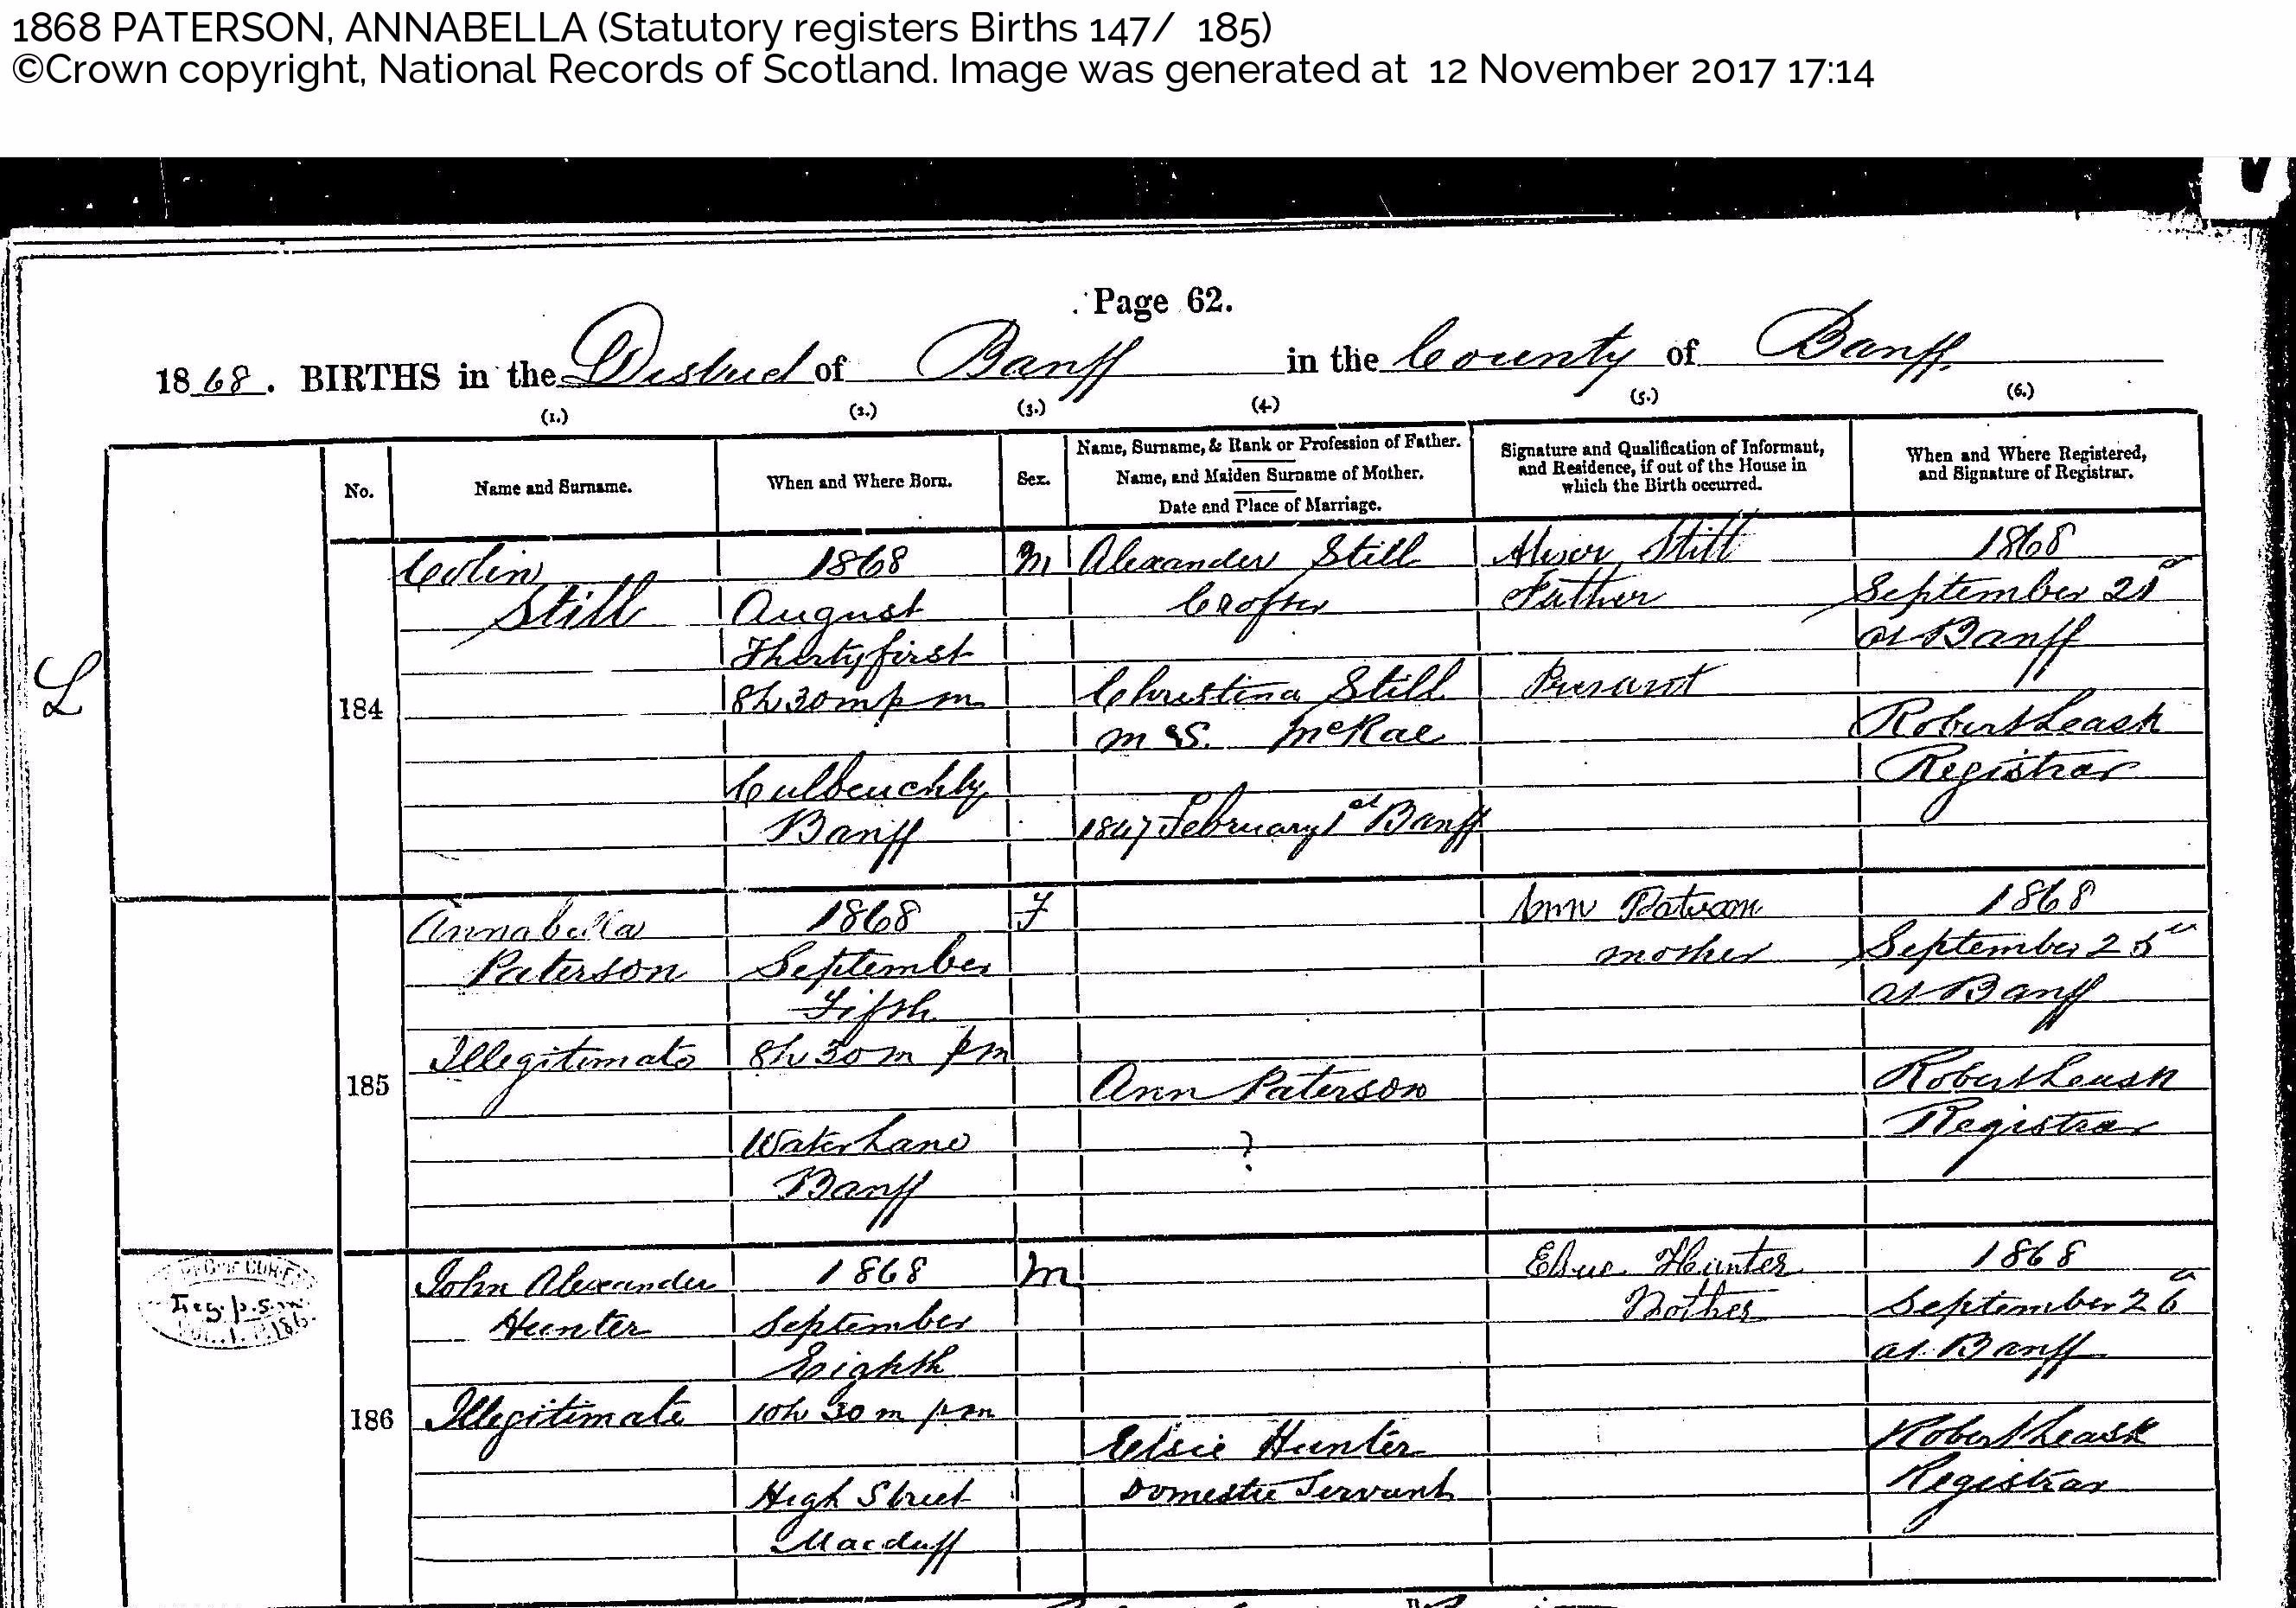 1868 PATERSON, ANNABELLA (Statutory registers Births 147/ 185)
©Crown copyright, National Records of Scotland. Image was generated at 12 November 2017 17:14
Page 62.
1868. BIRTHS in the District of Banff in the County of Banff
(1.) (2.) (3.) (4.) (5.) (6.)
No.
Name and Surname.
When and Where Born.
Sex.
Name, Surname, & Rank or Profession of Father.
Name, and Maiden Surname of Mother.
Date and Place of Marriage.
Signature and Qualification of Informant,
and Residence, if out of the House in
which the Birth occurred.
When and Where Registered,
and Signature of Registrar.
L
184
Colin
Still
1868
August
Thirty first
8h 30m p m
Culbeuchly
Banff
M
Alexander Still
Crofter
Christina Still
m S. McRae
1847 February 1st Banff
Alexr Still
Father
Present
1868
September
at Banff
Robert Leask
Registrar
185
Annabella
Paterson
Illegitimate
1868
September
Fifth
8h 30m pm
Water Lane
Banff
F
Ann Paterson
?
Ann Paterson
mother
1868
September 25
at Banff
Robert Leask
Registrar
186
John Alexander
Hunter
Illegitimate
1868
September
Eighth
10h 30m pm
High Street
Macduff
M
Elsie Hunter
Domestic Servant
Elsie Hunter
Mother
1868
September 26
at Banff
Robert Leask
Registrar